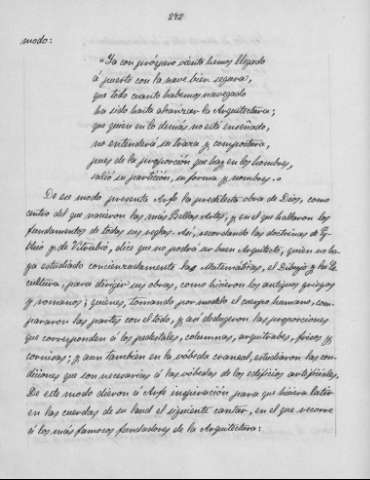 242
modo:
"Ya con próspero viento hemos llegado
á puerto con la nave bien segura;
que todo cuanto habemos navegado
ha sido hasta abanzar la Arquitectura;
que quien en lo demás no esté enseñado,
no entenderá su traza y compostura,
pues de la proporción que hay en los hombres,
salió su partición, su forma y nombres."
De ese modo presenta Arfe la predilecta obra de Dios, como
centro del que nacieron las más Bellas Artes, y en el que hallaron los
fundamentos de todas sus reglas. Así, recordando las doctrinas de
y de Vitrubio, dice que no podrá ser buen Arquitecto, quien no ha-
ya estudiado concienzudamente las Matemáticas, el Dibujo y la Es-
cultura, para dirigir sus obras, como hicieron los antiguos griegos
y romanos; quienes, tomando por modelo el cuerpo humano, com-
pararon las partes con el todo, y así dedujeron las proporciones
que corresponden á los pedestales, columnas, arquitrabes, frisos y
cornisas; y aun tambien en la bóveda craneal, estudiaron las con-
diciones que son necesarias á las bóvedas de los edificios artificiales.
De este modo dieron á Arfe inspiración para que hiciera latir
en las cuerdas de su laud el siguiente cantar, en el que recorre
á los más famosos fundadores de la Arquitectura: